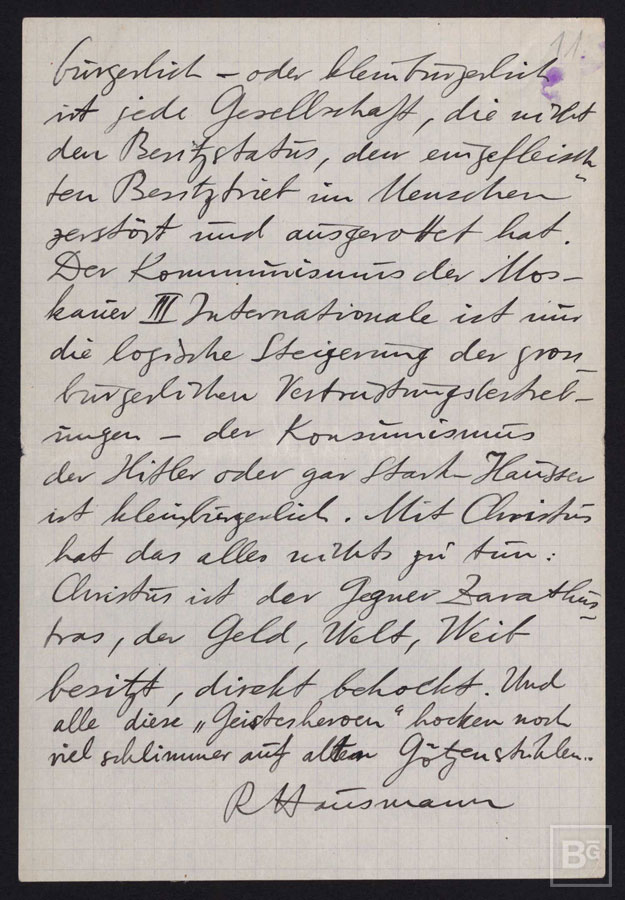 11.
bürgerlich – oder kleinbürgerlich
ist jede Gesellschaft, die nicht
den Besitzstatus, den eingefleisch-
ten Besitztrieb im Menschen
zerstört und ausgerottet hat.
Der Kommunismus der Mos-
kauer III Internationale ist nur
die logische Steigerung der gross-
bürgerlichen Vertrustungsbestreb-
ungen – der Konsumismus
der Hitler oder gar Stark-Häusser
ist kleinbürgerlich. Mit Christus
hat das alles nichts zu tun:
Christus ist der Gegner Zarathus-
tras, der Geld, Welt, Weib
besitzt, direkt behockt. Und
alle diese „Geistesheroen“ hocken noch
viel schlimmer auf alten Götzenstühlen..
R Hausmann
BG